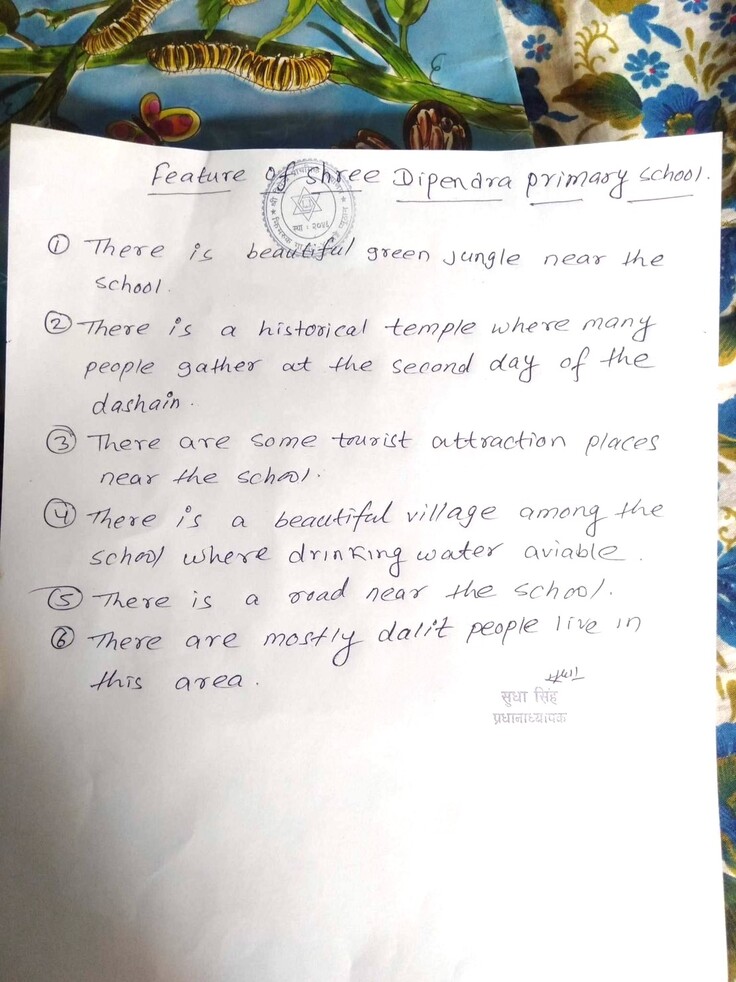 Feature of Shree Dipendra primary school.
① There is beautiful green jungle near the
school.
② There is a historical temple where many
people gather at the second day of the
dashain.
③ There are some tourist attraction places
near the school.
④ There is a beautiful village among the
school where drinking water aviable.
⑤ There is a road near the school.
⑥ There are mostly dalit people live in
this area.
सुधा सिंह
प्रधानाध्यापक